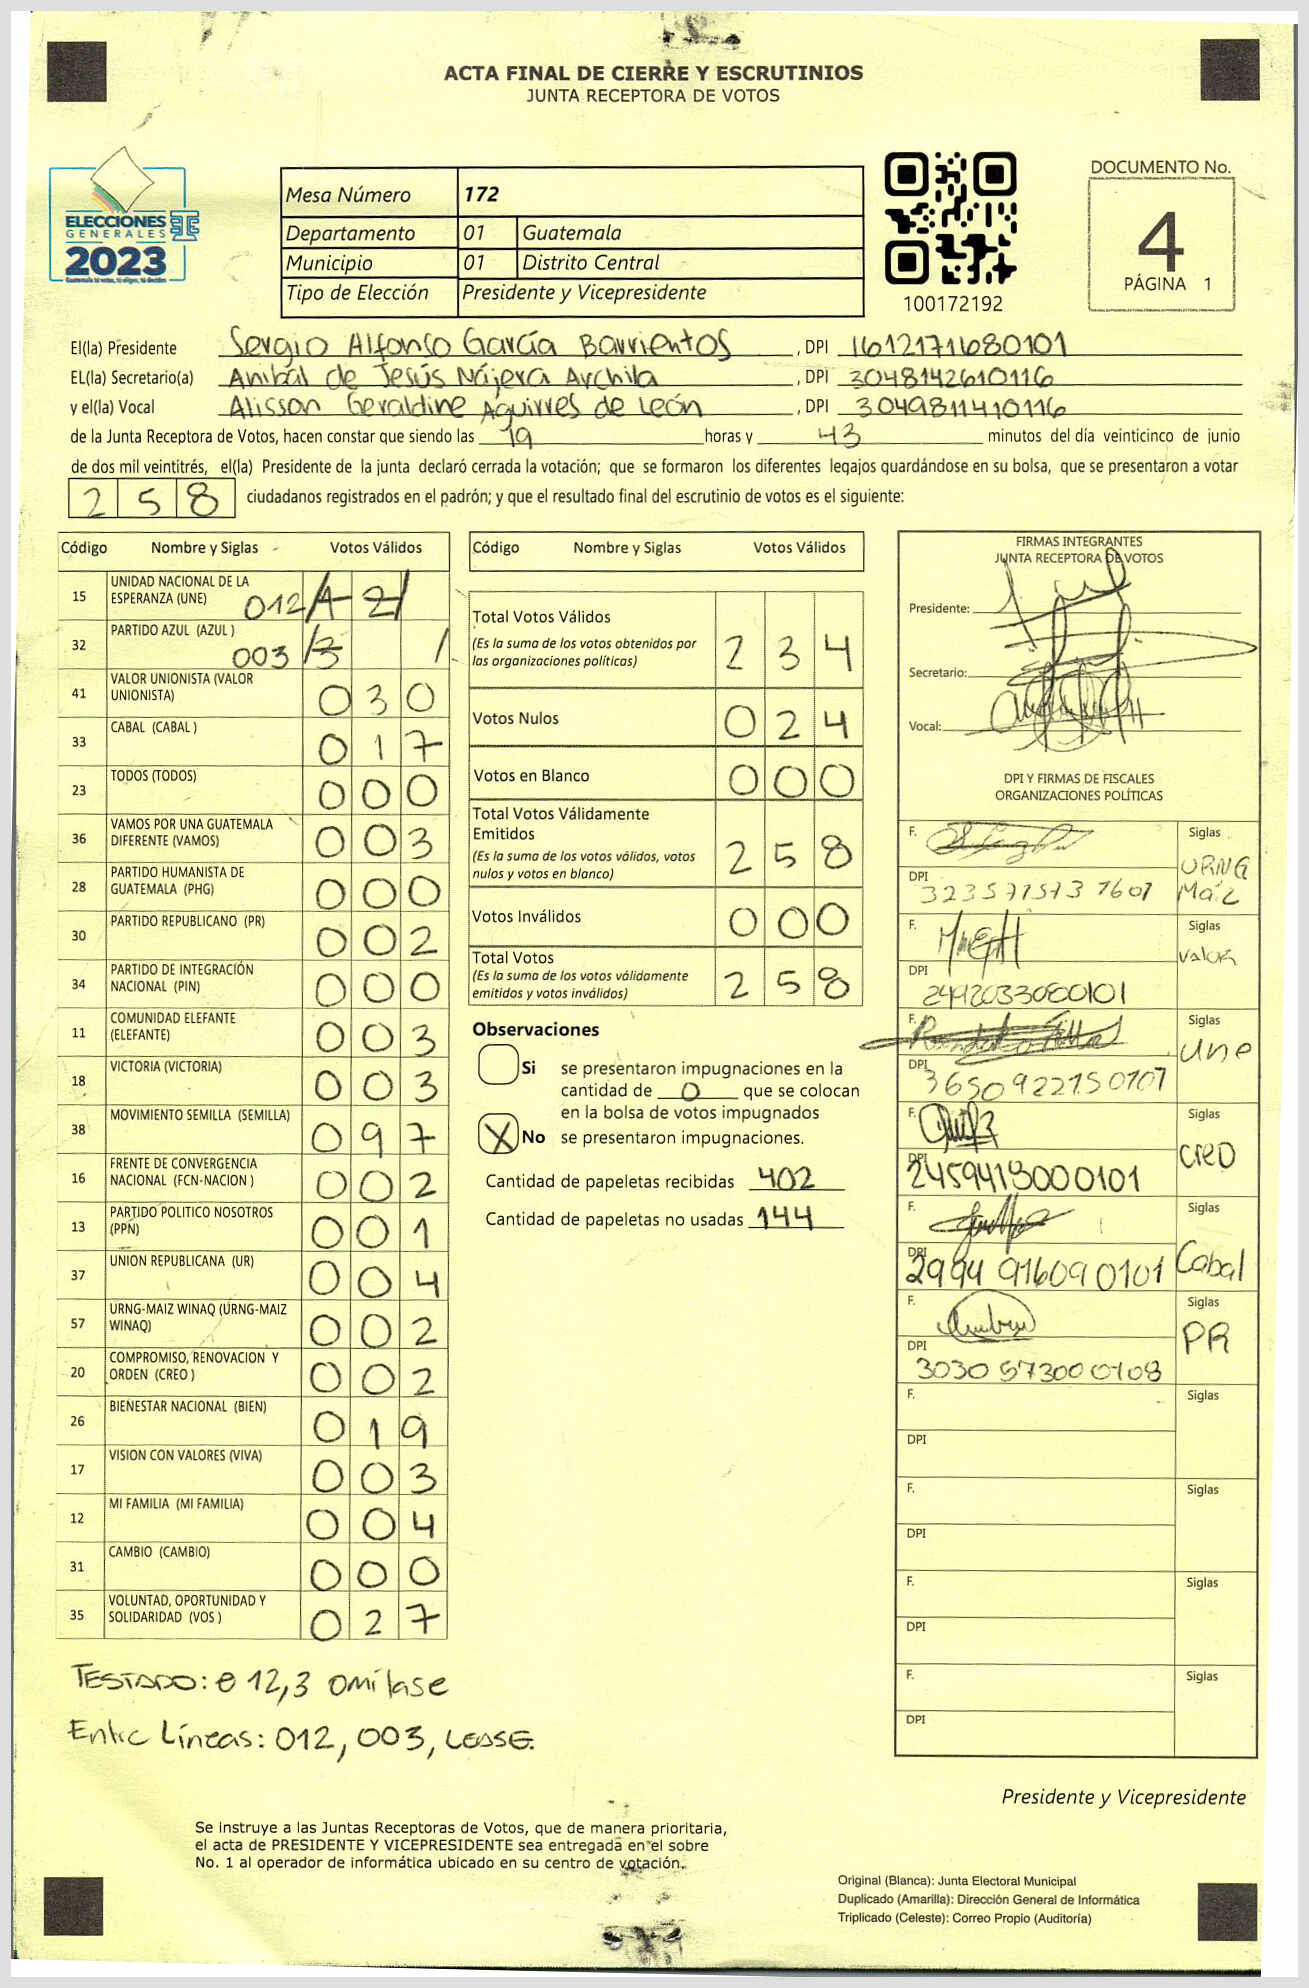 ACTA FINAL DE CIERRE Y ESCRUTINIOS
JUNTA RECEPTORA DE VOTOS
ELECCIONES
GENERALES
2023
Mesa Número 172
Departamento 01 Guatemala
Municipio 01 Distrito Central
Tipo de Elección Presidente y Vicepresidente
100172192
DOCUMENTO No.
4
PÁGINA 1
El(la) Presidente Sergio Alfonso García Barrientos, DPI 1612171680101
EL(la) Secretario(a) Anibal de Jesús Nájera Archila, DPI 3048142610116
y el(la) Vocal Alisson Geraldine Aguirres de León, DPI 3049811410116
de la Junta Receptora de Votos, hacen constar que siendo las 19 horas y 43 minutos del día veinticinco de junio
de dos mil veintitrés, el(la) Presidente de la junta declaró cerrada la votación; que se formaron los diferentes legajos guardándose en su bolsa, que se presentaron a votar
258 ciudadanos registrados en el padrón; y que el resultado final del escrutinio de votos es el siguiente:
Código Nombre y Siglas Votos Válidos
15 UNIDAD NACIONAL DE LA ESPERANZA (UNE) 012 12
32 PARTIDO AZUL (AZUL ) 003 3
41 VALOR UNIONISTA (VALOR UNIONISTA) 030
33 CABAL (CABAL ) 017
23 TODOS (TODOS) 000
36 VAMOS POR UNA GUATEMALA DIFERENTE (VAMOS) 003
28 PARTIDO HUMANISTA DE GUATEMALA (PHG) 000
30 PARTIDO REPUBLICANO (PR) 002
34 PARTIDO DE INTEGRACIÓN NACIONAL (PIN) 000
11 COMUNIDAD ELEFANTE (ELEFANTE) 003
18 VICTORIA (VICTORIA) 003
38 MOVIMIENTO SEMILLA (SEMILLA) 097
16 FRENTE DE CONVERGENCIA NACIONAL (FCN-NACION ) 002
13 PARTIDO POLITICO NOSOTROS (PPN) 001
37 UNION REPUBLICANA (UR) 004
57 URNG-MAIZ WINAQ (URNG-MAIZ WINAQ) 002
20 COMPROMISO, RENOVACION Y ORDEN (CREO ) 002
26 BIENESTAR NACIONAL (BIEN) 019
17 VISION CON VALORES (VIVA) 003
12 MI FAMILIA (MI FAMILIA) 004
31 CAMBIO (CAMBIO) 000
35 VOLUNTAD, OPORTUNIDAD Y SOLIDARIDAD (VOS ) 027
TESTADO: 0 12,3 omítase
Entre Líneas: 012, 003, LEASE.
Código Nombre y Siglas Votos Válidos
Total Votos Válidos 234
(Es la suma de los votos obtenidos por
las organizaciones políticas)
Votos Nulos 024
Votos en Blanco 000
Total Votos Válidamente
Emitidos 258
(Es la suma de los votos válidos, votos
nulos y votos en blanco)
Votos Inválidos 000
Total Votos 258
(Es la suma de los votos válidamente
emitidos y votos inválidos)
Observaciones
Si se presentaron impugnaciones en la
cantidad de 0 que se colocan
en la bolsa de votos impugnados
X No se presentaron impugnaciones.
Cantidad de papeletas recibidas 402
Cantidad de papeletas no usadas 144
FIRMAS INTEGRANTES
JUNTA RECEPTORA DE VOTOS
Presidente:
Secretario:
Vocal:
DPI Y FIRMAS DE FISCALES
ORGANIZACIONES POLÍTICAS
F. Siglas URNG Maíz
DPI 323571573 1601
F. Siglas Valor
DPI 2492033080101
F. Siglas Une
DPI 3650922150107
F. Siglas CREO
DPI 2459413000101
F. Siglas Cabal
DPI 2994 916090101
F. Siglas PR
DPI 3030 573000108
F. Siglas
DPI
F. Siglas
DPI
F. Siglas
DPI
F. Siglas
DPI
Presidente y Vicepresidente
Se instruye a las Juntas Receptoras de Votos, que de manera prioritaria,
el acta de PRESIDENTE Y VICEPRESIDENTE sea entregada en el sobre
No. 1 al operador de informática ubicado en su centro de votación.
Original (Blanca): Junta Electoral Municipal
Duplicado (Amarilla): Dirección General de Informática
Triplicado (Celeste): Correo Propio (Auditoría)